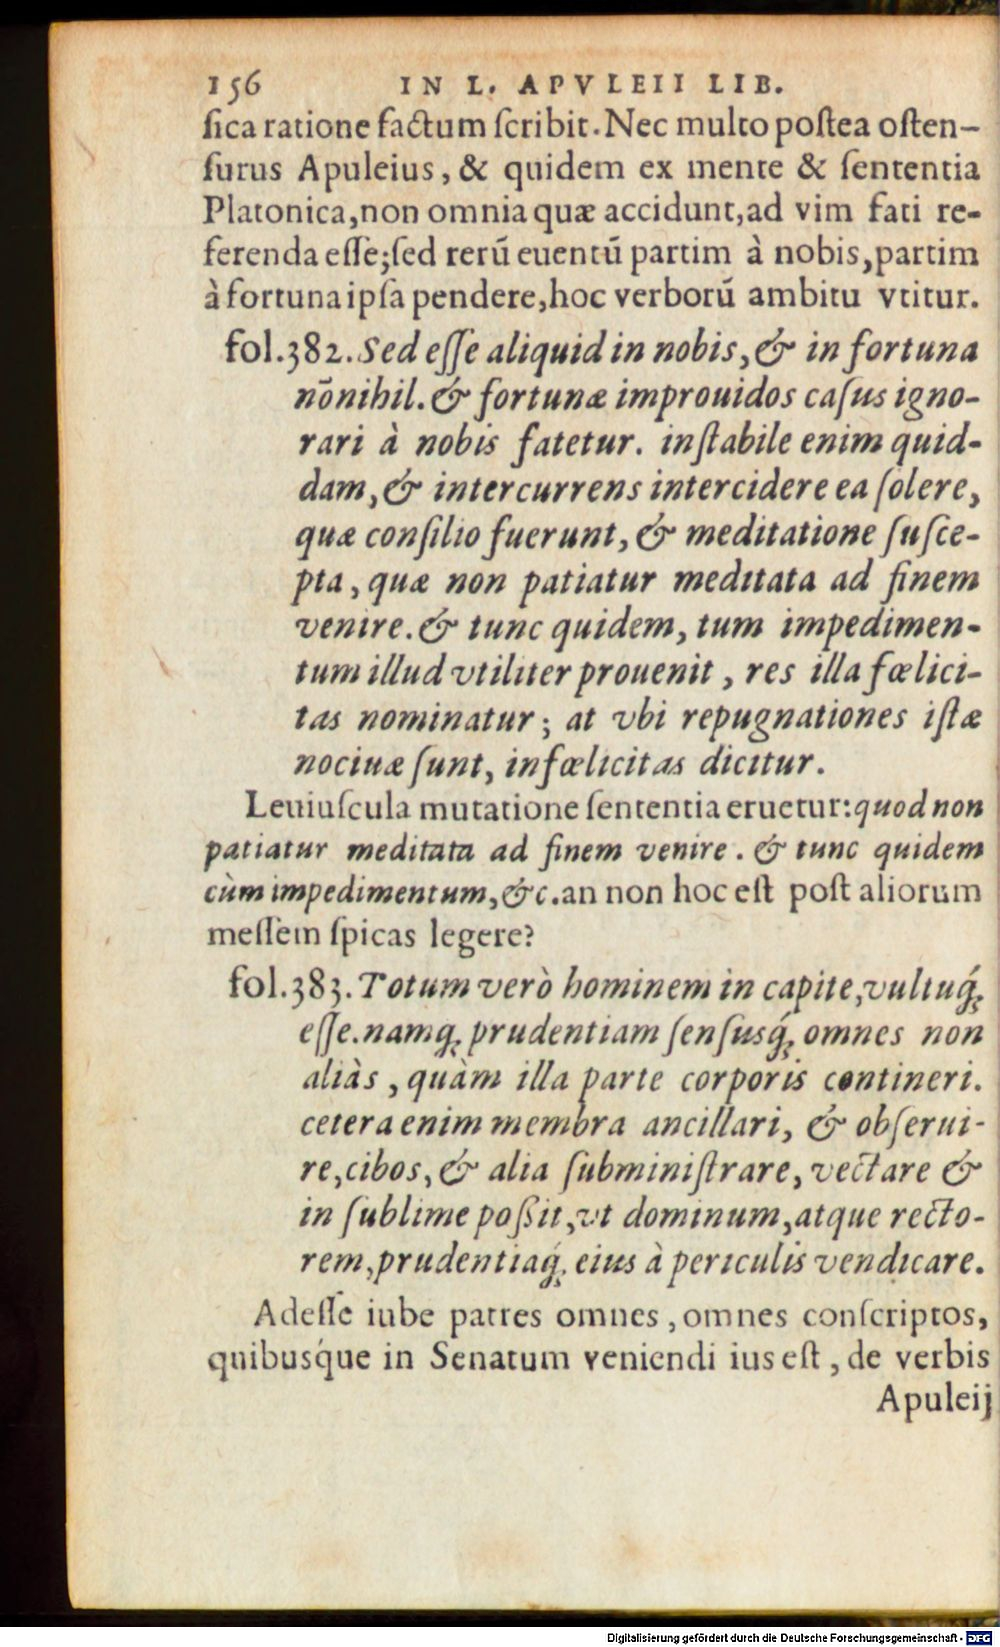 156 IN L. APVLEII LIB.
ſica ratione factum ſcribit. Nec multo poſtea oſten-
ſurus Apuleius, & quidem ex mente & ſententia
Platonica, non omnia quæ accidunt, ad vim fati re-
ferenda eſſe; ſed rerũ euentũ partim à nobis, partim
à fortuna ipſa pendere, hoc verborũ ambitu vtitur.
fol. 382. Sed eſſe aliquid in nobis, & in fortuna
nõnihil. & fortunæ improuidos caſus igno-
rari à nobis fatetur. inſtabile enim quid-
dam, & intercurrens intercidere ea ſolere,
quæ conſilio fuerunt, & meditatione ſuſce-
pta, quæ non patiatur meditata ad finem
venire. & tunc quidem, tum impedimen-
tum illud vtiliter prouenit, res illa fœlici-
tas nominatur; at vbi repugnationes iſtæ
nociuæ ſunt, infœlicitas dicitur.
Leuiuſcula mutatione ſententia eruetur: quod non
patiatur meditata ad finem venire. & tunc quidem
cùm impedimentum, &c. an non hoc eſt poſt aliorum
meſſem ſpicas legere?
fol. 383. Totum verò hominem in capite, vultuq́;
eſſe. namq; prudentiam ſenſusq́; omnes non
aliàs, quàm illa parte corporis contineri.
cetera enim membra ancillari, & obſerui-
re, cibos, & alia ſubminiſtrare, vectare &
in ſublime poßit, vt dominum, atque recto-
rem, prudentiaq́; eius à periculis vendicare.
Adeſſe iube patres omnes, omnes conſcriptos,
quibusq́ue in Senatum veniendi ius eſt, de verbis
Apuleij
Digitalisierung gefördert durch die Deutsche Forschungsgemeinschaft - DFG